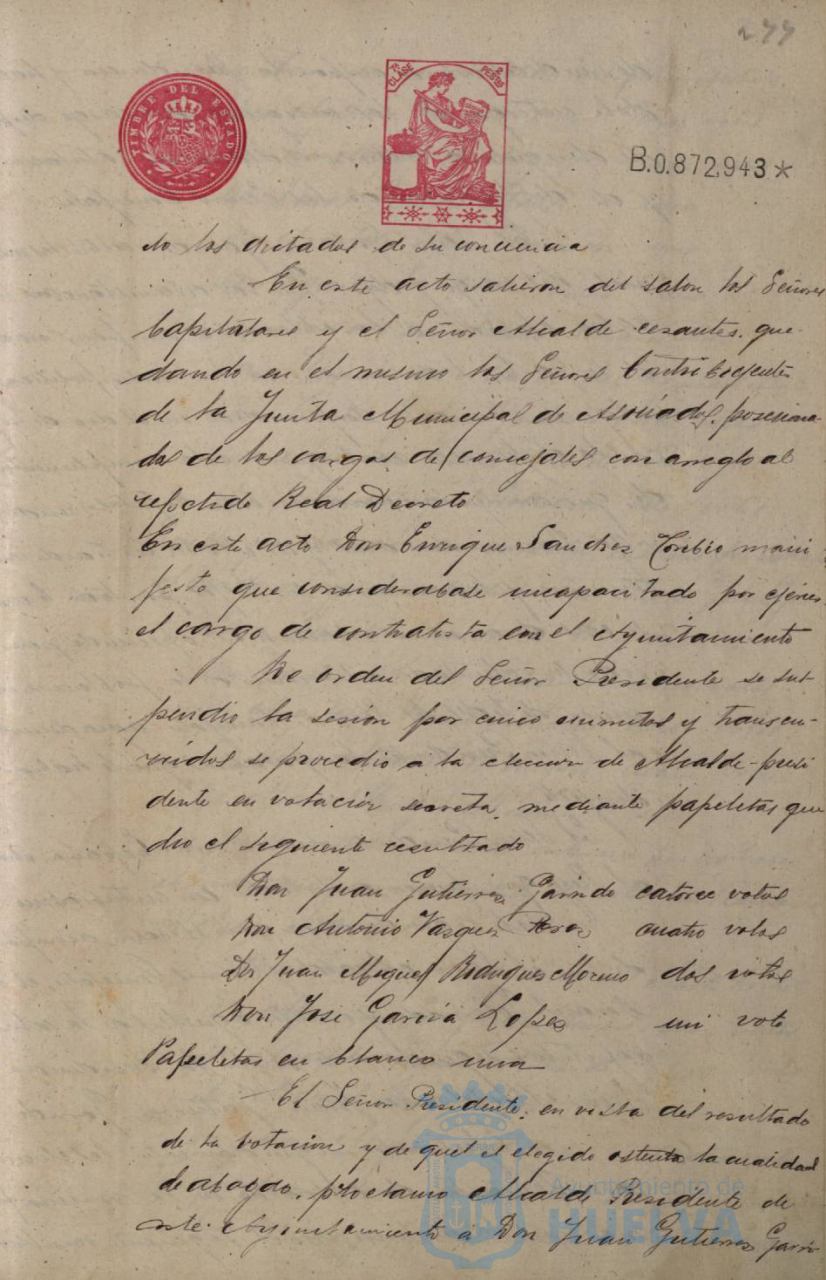 277
TIMBRE DEL ESTADO
7ª CLASE
2 PESETAS
B.0.872,943*
do los dictados de su conciencia
En este acto salieron del salon los Señores
Capitulares y el Señor Alcalde cesantes, que-
dando en el mismo los Señores Contribuyentes
de la Junta Municipal de Asociados, posesiona-
dos de los cargos de concejales con arreglo al
repetido Real Decreto
En este acto Don Enrique Sanchez Toribio mani
festó que considerabase incapacitado por ejercer
el cargo de contratista con el Ayuntamiento
De orden del Señor Presidente se sus-
pendio la sesión por cinco minutos y transcu-
rridos se procedio a la eleccion de Alcalde-presi
dente en votación secreta, mediante papeletas que
dio el siguiente resultado
Don Juan Gutierrez Garrido catorce votos
Don Antonio Vazquez Perez cuatro votos
Don Juan Miguel Rodriguez Moreno dos votos
Don José Garcia Lopez un voto
Papeletas en blanco una
El Señor Presidente, en vista del resultado
de la votacion y de que el elegido ostenta la cualidad
de abogado, proclamo Alcalde Presidente de
este Ayuntamiento á Don Juan Gutierrez Garri-
Ayuntamiento de
HUELVA